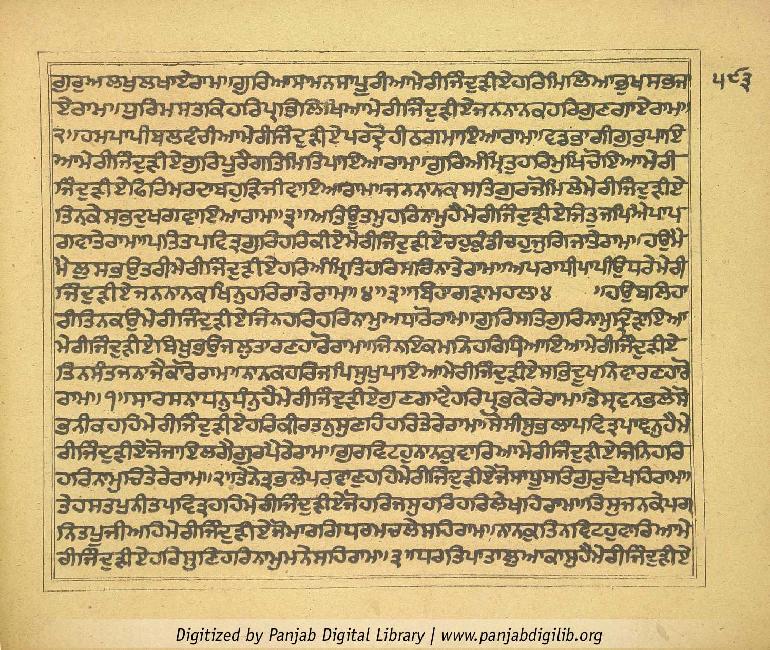 ਗੁਰੁਅਲਖੁਲਖਾਏਰਾਮ॥ਗੁਰਿਆਸਾਮਨਸਾਪੂਰੀਆਮੇਰੀਜਿੰਦੁੜੀਏਹਰਿਮਿਲਿਆਭੁਖਸਭਜਾ
੫੯੩
ਏਰਾਮ॥ਧੁਰਿਮਸਤਕਿਹਰਿਪ੍ਰਭਿਲਿਖਿਆਮੇਰੀਜਿੰਦੁੜੀਏਜਨਨਾਨਕਹਰਿਗੁਣਗਾਏਰਾਮ॥
੨॥ਹਮਪਾਪੀਬਲਵੰਚੀਆਮੇਰੀਜਿੰਦੁੜੀਏਪਰਦ੍ਰੋਹੀਠਗਮਾਇਆਰਾਮ॥ਵਡਭਾਗੀਗੁਰੁਪਾਇ
ਆਮੇਰੀਜਿੰਦੁੜੀਏਗੁਰਿਪੂਰੈਗਤਿਮਿਤਿਪਾਇਆਰਾਮ॥ਗੁਰਿਅੰਮ੍ਰਿਤੁਹਰਿਮੁਖਿਚੋਇਆਮੇਰੀ
ਜਿੰਦੁੜੀਏਫਿਰਿਮਰਦਾਬਹੁੜਿਜੀਵਾਇਆਰਾਮ॥ਜਨਨਾਨਕਸਤਿਗੁਰਜੋਮਿਲੇਮੇਰੀਜਿੰਦੁੜੀਏ
ਤਿਨਕੇਸਭਦੁਖਗਵਾਇਆਰਾਮ॥੩॥ਅਤਿਊਤਮੁਹਰਿਨਾਮੁਹੈਮੇਰੀਜਿੰਦੁੜੀਏਜਿਤੁਜਪਿਐਪਾਪ
ਗਵਾਤੇਰਾਮ॥ਪਤਿਤਪਵਿਤ੍ਰਗੁਰਿਹਰਿਕੀਏਮੇਰੀਜਿੰਦੁੜੀਏਚਹੁਕੁੰਡੀਚਹੁਜੁਗਿਜਾਤੇਰਾਮ॥ਹਉਮੈ
ਮੈਲੁਸਭਉਤਰੀਮੇਰੀਜਿੰਦੁੜੀਏਹਰਿਅੰਮ੍ਰਿਤਿਹਰਿਸਰਿਨਾਤੇਰਾਮ॥ਅਪਰਾਧੀਪਾਪੀਉਧਰੇਮੇਰੀ
ਜਿੰਦੁੜੀਏਜਨਨਾਨਕਖਿਨੁਹਰਿਰਾਤੇਰਾਮ॥੪॥੩॥ਬਿਹਾਗੜਾਮਹਲਾ੪ ॥ਹਉਬਲਿਹਾ
ਰੀਤਿਨਕਉਮੇਰੀਜਿੰਦੁੜੀਏਜਿਨਹਰਿਹਰਿਨਾਮੁਅਧਾਰੋਰਾਮ॥ਗੁਰਿਸਤਿਗੁਰਿਨਾਮੁਦ੍ਰਿੜਾਇਆ
ਮੇਰੀਜਿੰਦੁੜੀਏਬਿਖੁਭਉਜਲੁਤਾਰਣਹਾਰੋਰਾਮ॥ਜਿਨਇਕਮਨਿਹਰਿਧਿਆਇਆਮੇਰੀਜਿੰਦੁੜੀਏ
ਤਿਨਸੰਤਜਨਾਜੈਕਾਰੋਰਾਮ॥ਨਾਨਕਹਰਿਜਪਿਸੁਖੁਪਾਇਆਮੇਰੀਜਿੰਦੁੜੀਏਸਭਿਦੂਖਨਿਵਾਰਣਹਾਰੋ
ਰਾਮ॥੧॥ਸਾਰਸਨਾਧਨੁਧੰਨੁਹੈਮੇਰੀਜਿੰਦੁੜੀਏਗੁਣਗਾਵੈਹਰਿਪ੍ਰਭਕੇਰੇਰਾਮ॥ਤੇਸ੍ਰਵਨਭਲੇਸੋ
ਭਨੀਕਹਹਿਮੇਰੀਜਿੰਦੁੜੀਏਹਰਿਕੀਰਤਨੁਸੁਣਹਿਹਰਿਤੇਰੇਰਾਮ॥ਸੋਸੀਸੁਭਲਾਪਵਿਤ੍ਰਪਾਵਨੁਹੈਮੇ
ਰੀਜਿੰਦੁੜੀਏਜੋਜਾਇਲਗੈਗੁਰਪੈਰੇਰਾਮ॥ਗੁਰਵਿਟਹੁਨਾਨਕੁਵਾਰਿਆਮੇਰੀਜਿੰਦੁੜੀਏਜਿਨਿਹਰਿ
ਹਰਿਨਾਮੁਚਿਤੇਰੇਰਾਮ॥੨॥ਤੇਨੇਤ੍ਰਭਲੇਪਰਵਾਣੁਹਹਿਮੇਰੀਜਿੰਦੁੜੀਏਜੋਸਾਧੂਸਤਿਗੁਰੁਦੇਖਹਿਰਾਮ॥
ਤੇਹਸਤਪੁਨੀਤਪਵਿਤ੍ਰਹਹਿਮੇਰੀਜਿੰਦੁੜੀਏਜੋਹਰਿਜਸੁਹਰਿਹਰਿਲੇਖਹਿਰਾਮ॥ਤਿਸੁਜਨਕੇਪਗ
ਨਿਤਪੂਜੀਅਹਿਮੇਰੀਜਿੰਦੁੜੀਏਜੋਮਾਰਗਿਧਰਮਚਲੇਸਹਿਰਾਮ॥ਨਾਨਕੁਤਿਨਵਿਟਹੁਵਾਰਿਆਮੇ
ਰੀਜਿੰਦੁੜੀਏਹਰਿਸੁਣਿਹਰਿਨਾਮੁਮਨੇਸਹਿਰਾਮ॥੩॥ਧਰਤਿਪਾਤਾਲੁਆਕਾਸੁਹੈਮੇਰੀਜਿੰਦੁੜੀਏ
Digitized by Panjab Digital Library | www.panjabdigilib.org